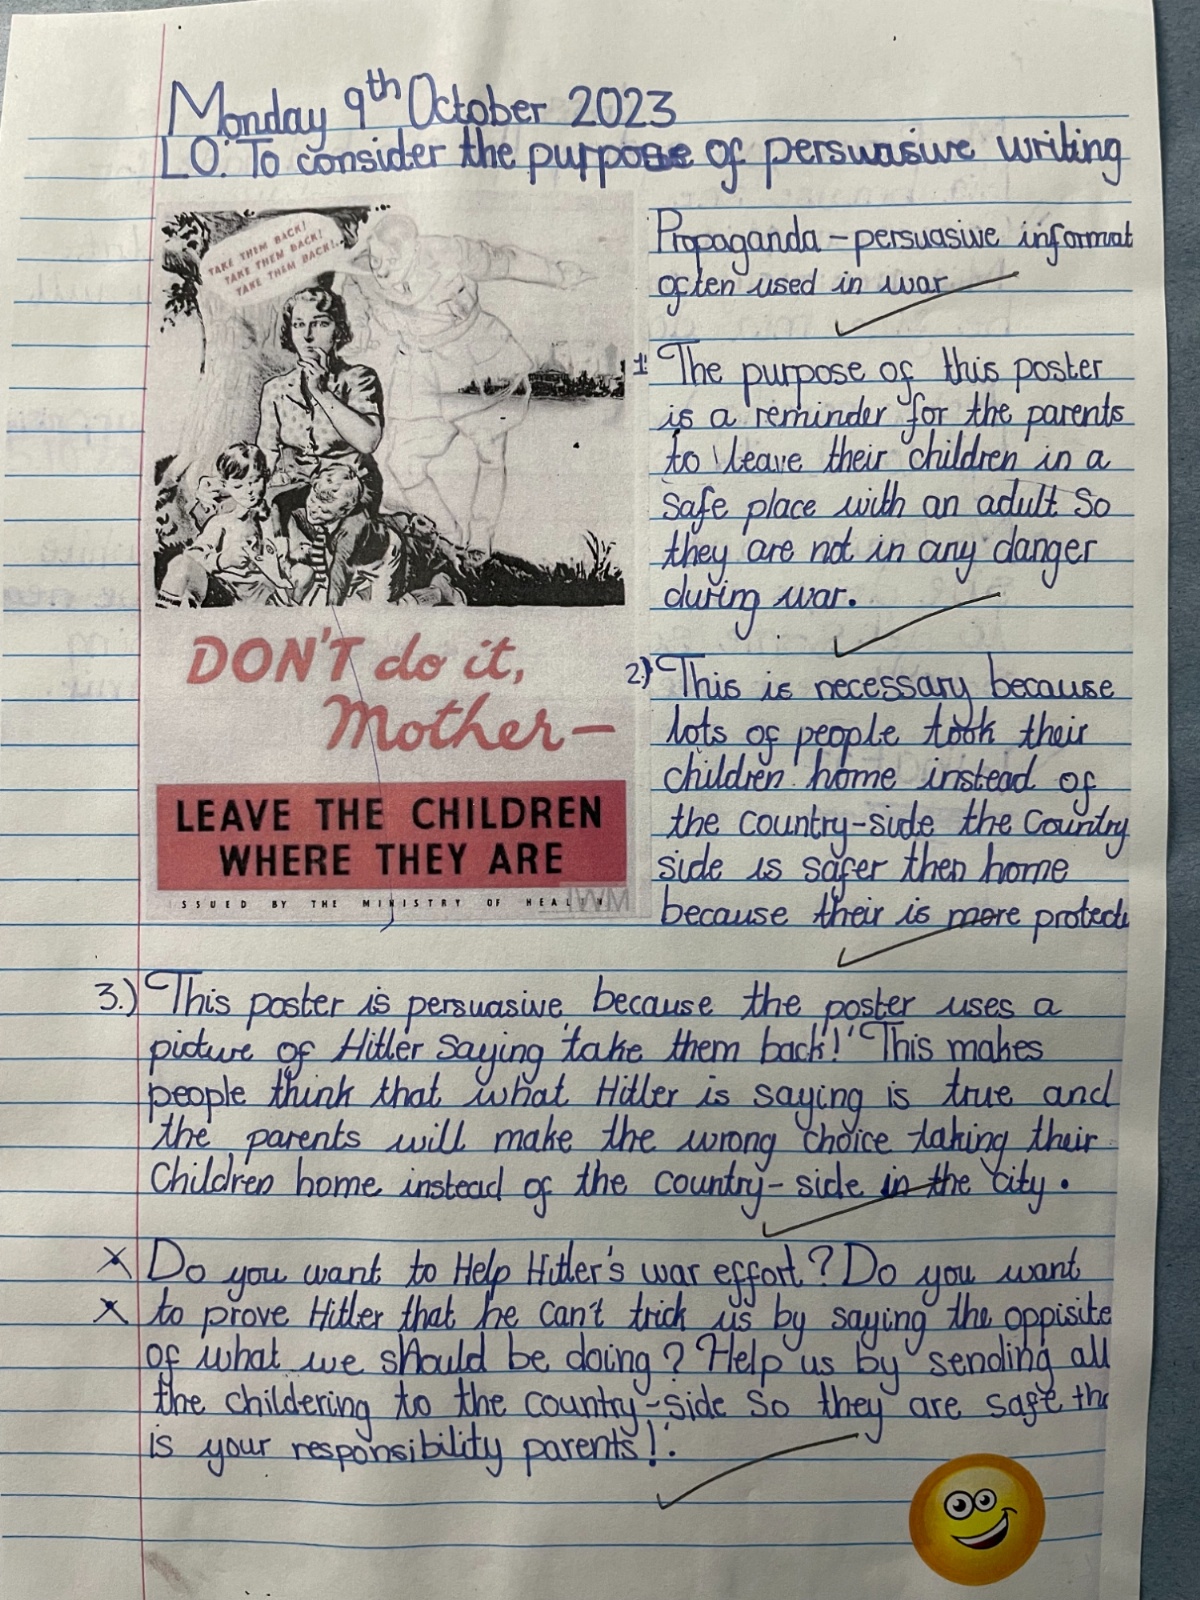 Monday 9th October 2023
LO: To consider the purpose of persuasive writing
TAKE THEM BACK!
TAKE THEM BACK!
TAKE THEM BACK!..
DON'T do it,
Mother—
LEAVE THE CHILDREN
WHERE THEY ARE
ISSUED BY THE MINISTRY OF HEALTH
IWM
Propaganda - persuasive informat
often used in war
1. The purpose of this poster
is a reminder for the parents
to leave their children in a
safe place with an adult so
they are not in any danger
during war.
2.) This is necessary because
lots of people took their
children home instead of
the country-side the country
side is safer then home
because their is more protecti
3.) This poster is persuasive because the poster uses a
picture of Hitler saying 'take them back!' This makes
people think that what Hitler is saying is true and
the parents will make the wrong choice taking their
Children home instead of the country-side in the city.
x Do you want to Help Hitler's war effort? Do you want
x to prove Hitler that he can't trick us by saying the oppisite
of what we should be doing? Help us by sending all
the childering to the country-side so they are safe
is your responsibility parents!.